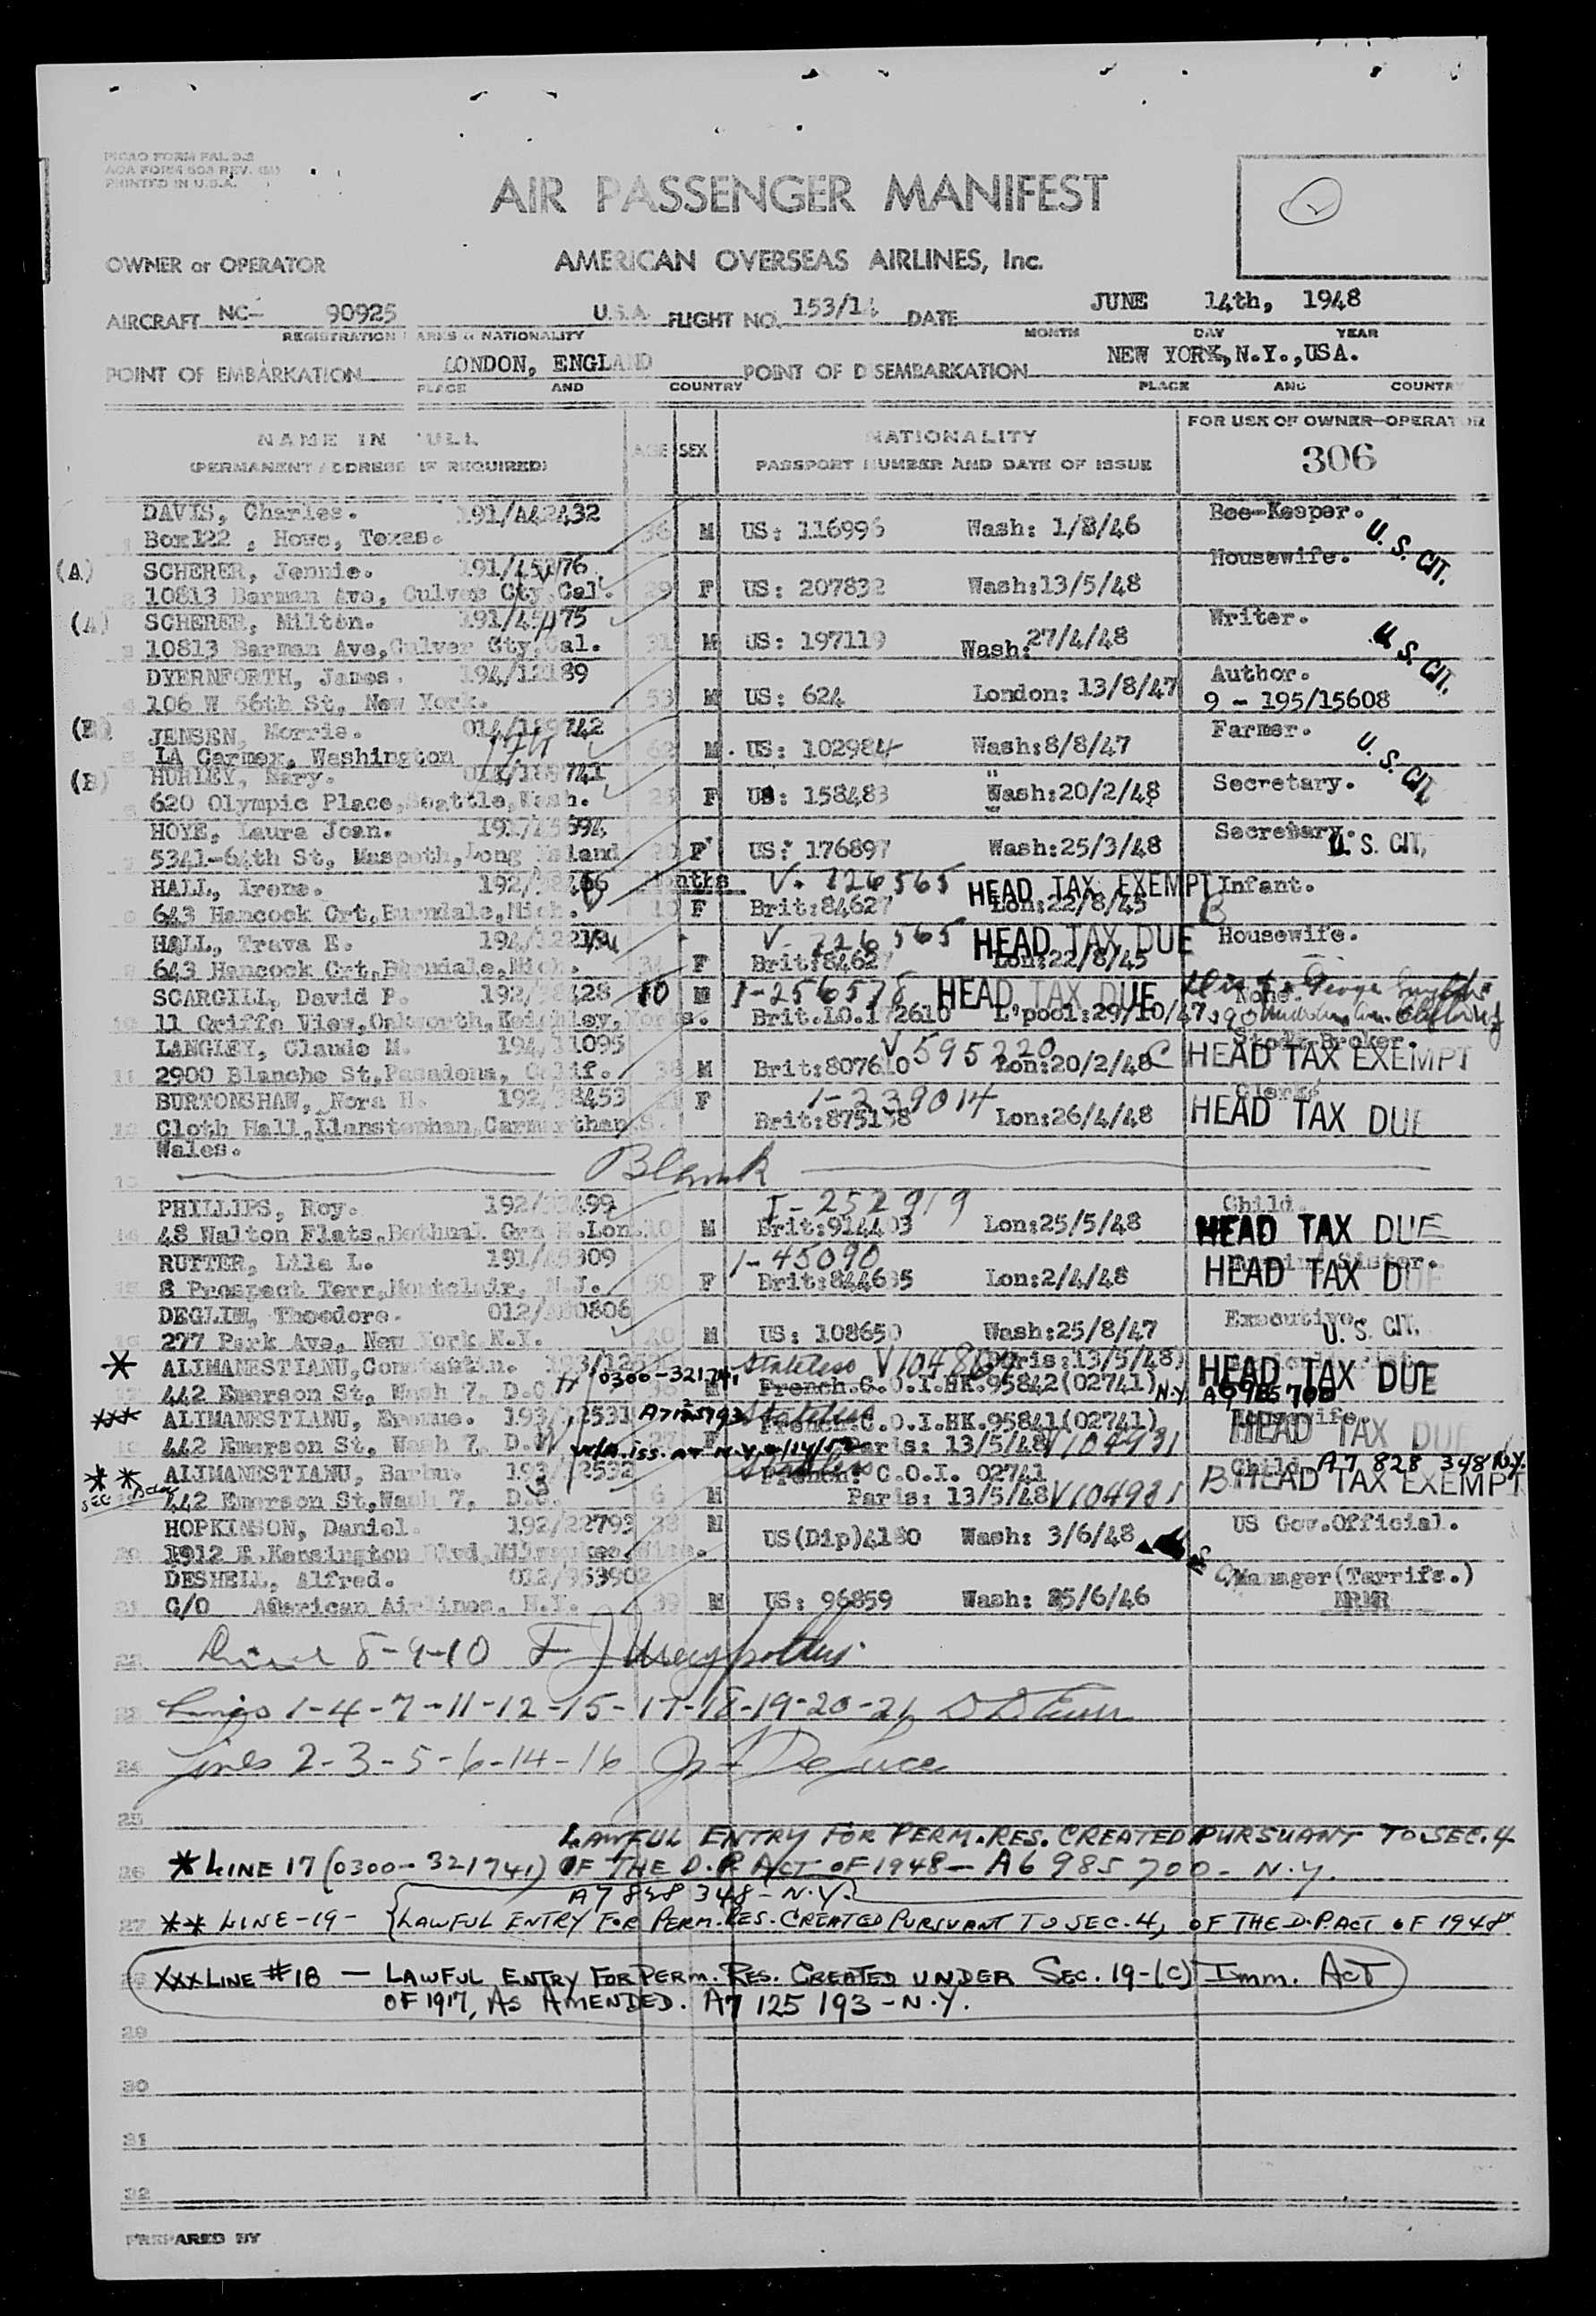 PICAO FORM FAL 9.2
PRINTED IN U.S.A.
AIR PASSENGER MANIFEST
OWNER or OPERATOR AMERICAN OVERSEAS AIRLINES, Inc.
AIRCRAFT NC- 90925 U.S.A. FLIGHT NO. 153/14 DATE JUNE 14th, 1948
REGISTRATION MARKS NATIONALITY MONTH DAY YEAR
POINT OF EMBARKATION LONDON, ENGLAND POINT OF DISEMBARKATION NEW YORK, N.Y., USA.
PLACE AND COUNTRY PLACE AND COUNTRY
NAME IN FULL AGE SEX NATIONALITY FOR USE OF OWNER-OPERATOR
(PERMANENT ADDRESS IF REQUIRED) PASSPORT NUMBER AND DATE OF ISSUE 306
DAVIS, Charles. 191/A42432 Bee-Keeper.
1 Box122 , Howe, Texas. 36 M US: 116996 Wash: 1/8/46 U. S. CIT.
(A) SCHERER, Jennie. Housewife.
2 10813 Barman Ave, Culver Cty Cal. 29 F US: 207832 Wash:13/5/48
(A) SCHERER, Milton. Writer.
3 10813 Barman Ave, Culver Cty, Cal. 31 M US: 197119 Wash: 27/4/48 U. S. CIT.
DYERNFORTH, James. 194/12189 Author.
4 106 W 56th St, New York. 53 M US: 624 London: 13/8/47 9 - 195/15608
(B) JENSEN, Morris. Farmer.
5 LA Carmex, Washington 62 M. US: 102984 Wash:8/8/47 U. S. CIT.
(B) HURLEY, Mary. Secretary.
620 Olympic Place, Seattle, Wash. F US: 158483 Wash:20/2/48
HOYE, Laura Joan. Secretary. U. S. CIT,
7 5341-64th St, Maspeth, Long Island F US: 176897 Wash:25/3/48
HALL, Irene. Months V. 226565 HEAD TAX EXEMPT Infant.
643 Hancock Crt, Mich. 10 F Brit:84627 Lon:22/8/45 B
HALL, Trava E. V- 226565 HEAD TAX DUE Housewife.
643 Hancock Crt, Mich. F Brit:84627 Lon:22/8/45
SCARGILL, David P. 10 M I-256578 HEAD TAX DUE None.
10 11 Griffe View, Oakworth, Keighley, Yorks. Brit.LO.172610 L'pool:29/10/47
LANGLEY, Claude M. 194/11095 V595220 Stock Broker.
11 2900 Blanche St, Pasadena, Calif. 38 M Brit:807610 Lon:20/2/48 C HEAD TAX EXEMPT
BURTONSHAW, Nora H. 192/38453 F I-239014 Clerk
12 Cloth Hall, Llanstephan, Carmarthen S. Brit:875138 Lon:26/4/48 HEAD TAX DUE
Wales.
13 Blank
PHILLIPS, Roy. I-252919 Child.
14 48 Walton Flats, Bethnal Grn E.Lon. 10 M Brit:914403 Lon:25/5/48 HEAD TAX DUE
RUTTER, Lila L. 191/45309 I-45090 Nursing Sister.
15 8 Prospect Terr, Montclair, N.J. 50 F Brit:844635 Lon:2/4/48 HEAD TAX DUE
DEGLIM, Theodore. Executive.
16 277 Park Ave, New York N.Y. 40 M US: 108650 Wash:25/8/47 U. S. CIT.
* ALIMANESTIANU, Constantin. Stateless Paris:13/5/48 HEAD TAX DUE
17 442 Emerson St, Wash 7, D.C. 0300-321741 M French.C.O.I.HK.95842(02741) N.Y. A6985700
*** ALIMANESTIANU, 193/12531 A7125193 Stateless French.C.O.I.HK.95841(02741) Housewife.
18 442 Emerson St, Wash 7, D.C. F Paris: 13/5/48 V104931 HEAD TAX DUE
** ALIMANESTIANU, Barbu. 193/12532 Stateless French: C.O.I. 02741 Child A7 828 348 N.Y.
442 Emerson St, Wash 7, D.C. 6 M Paris: 13/5/48 V104931 B HEAD TAX EXEMPT
HOPKINSON, Daniel. 192/22793 38 M US Gov.Official.
20 1912 E.Kensington Blvd, Milwaukee, Wisc. US(Dip)4180 Wash: 3/6/48
DESHELL, Alfred. Manager(Tarrifs.)
21 C/O American Airlines, N.Y. 39 M US: 96859 Wash: 25/6/46
22 8-9-10
23 Lines 1-4-7-11-12-15-17-18-19-20-21
24 Lines 2-3-5-6-14-16
25
LAWFUL ENTRY FOR PERM. RES. CREATED PURSUANT TO SEC. 4
26 * LINE 17 (0300-321741) OF THE D.P. ACT OF 1948 - A6 985 700 - N.Y.
A7 828 348 - N.Y.
27 ** LINE-19- {LAWFUL ENTRY FOR PERM. RES. CREATED PURSUANT TO SEC. 4, OF THE D.P. ACT OF 1948
28 XXX LINE #18 — LAWFUL ENTRY FOR PERM. RES. CREATED UNDER SEC. 19-(C) IMM. ACT
OF 1917, AS AMENDED. A7 125 193 - N.Y.
29
30
31
32
PREPARED BY